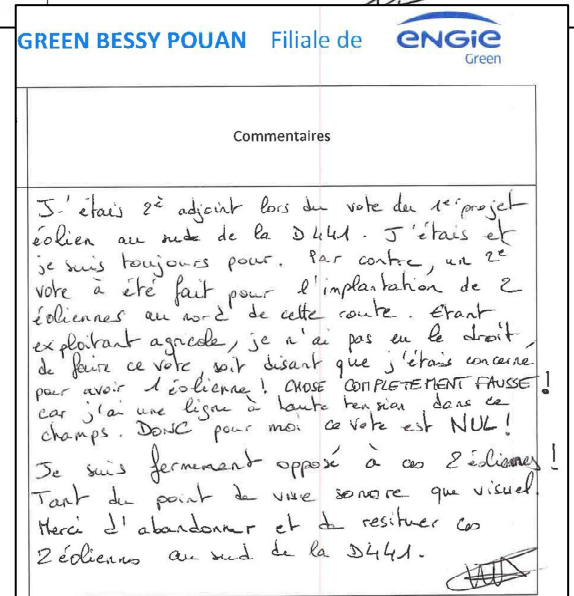 GREEN BESSY POUAN Filiale de ENGIE
Green
Commentaires
J'étais 2è adjoint lors du vote du 1er projet
éolien au sud de la D441. J'étais et
je suis toujours pour. Par contre, un 2e
vote à été fait pour l'implantation de 2
éoliennes au nord de cette route. Etant
exploitant agricole, je n'ai pas eu le droit
de faire ce vote, soit disant que j'étais concerné
pour avoir 1 éolienne ! CHOSE COMPLETEMENT FAUSSE !
car j'ai une ligne à haute tension dans ce
champs. DONC pour moi ce vote est NUL !
Je suis fermement opposé à ces 2 éoliennes !
Tant du point de vue sonore que visuel.
Merci d'abandonner et de resituer ces
2 éoliennes au sud de la D441.